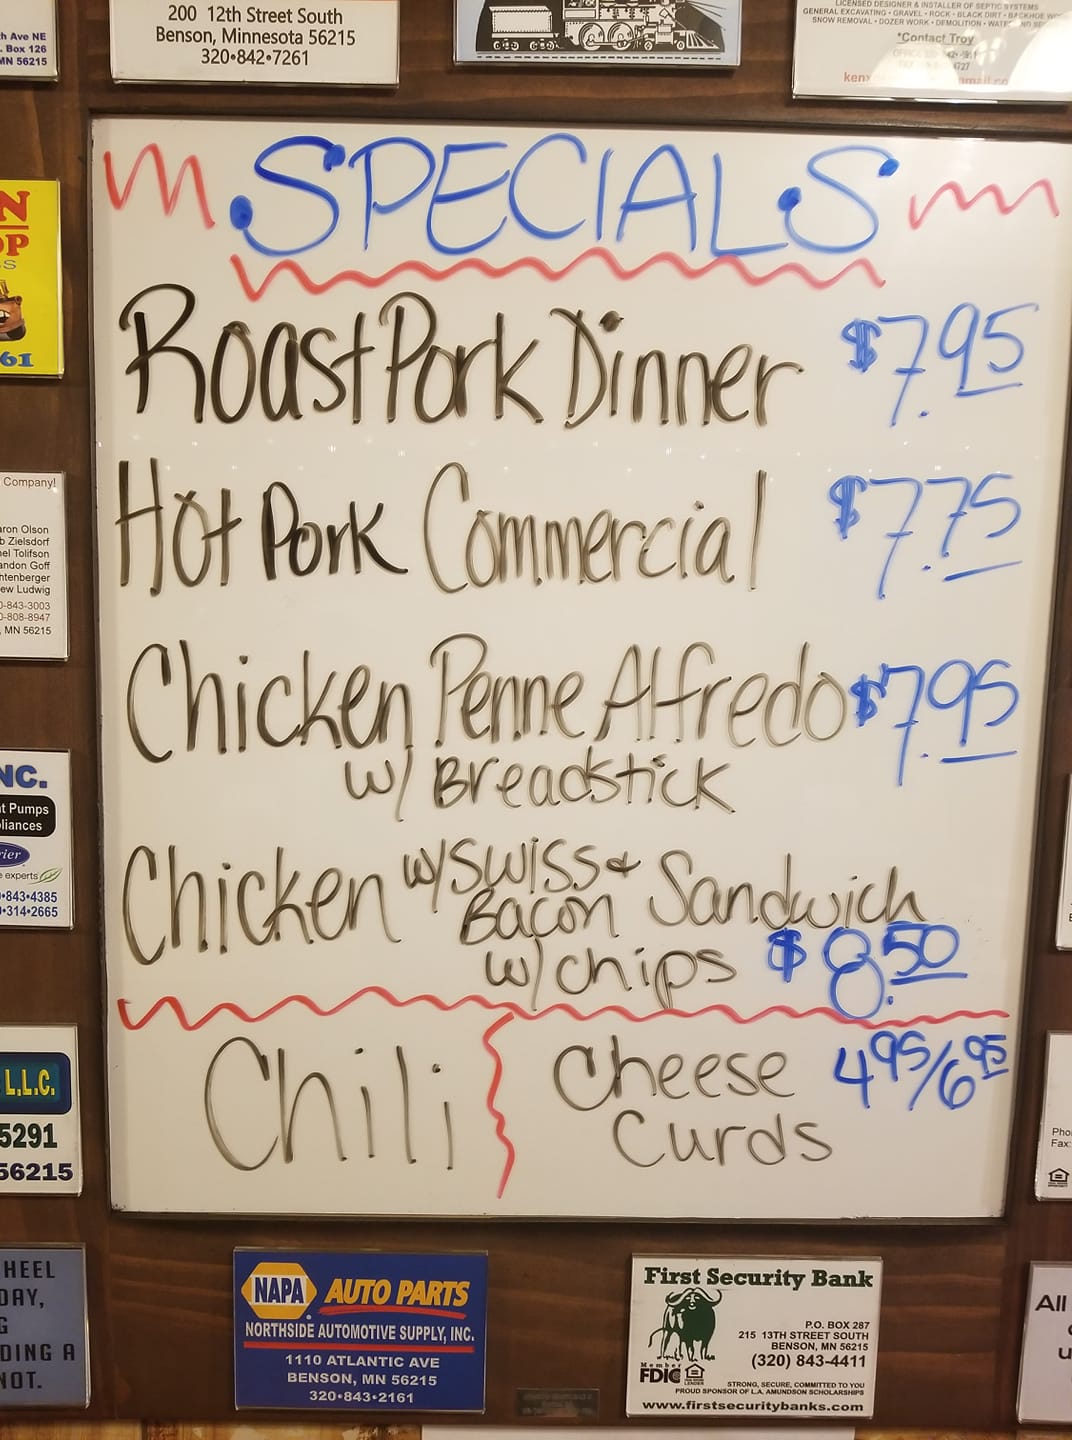 200 12th Street South
Benson, Minnesota 56215
320•842•7261
th Ave NE
Box 126
MN 56215
LICENSED DESIGNER & INSTALLER OF SEPTIC SYSTEMS
GENERAL EXCAVATING • GRAVEL • ROCK • BLACK DIRT • BACKHOE
SNOW REMOVAL • DOZER WORK • DEMOLITION •
*Contact Troy
SPECIALS
Roast Pork Dinner $7.95
Hot Pork Commercial $7.75
Chicken Penne Alfredo $7.95
w/ Breadstick
Chicken w/ Swiss & Bacon Sandwich
w/ chips $8.50
Chili
Cheese Curds 4.95/6.95
N
OP
S
61
Company!
aron Olson
b Zielsdorf
el Tolifson
andon Goff
htenberger
ew Ludwig
0-843-3003
0-808-8947
, MN 56215
NC.
t Pumps
liances
rier
e experts
•843•4385
•314•2665
L.L.C.
5291
56215
HEEL
DAY,
G
DING A
NOT.
NAPA AUTO PARTS
NORTHSIDE AUTOMOTIVE SUPPLY, INC.
1110 ATLANTIC AVE
BENSON, MN 56215
320•843•2161
First Security Bank
P.O. BOX 287
215 13TH STREET SOUTH
BENSON, MN 56215
(320) 843-4411
Member
FDIC
STRONG, SECURE, COMMITTED TO YOU
PROUD SPONSOR OF L.A. AMUNDSON SCHOLARSHIPS
www.firstsecuritybanks.com
Pho
Fax:
All